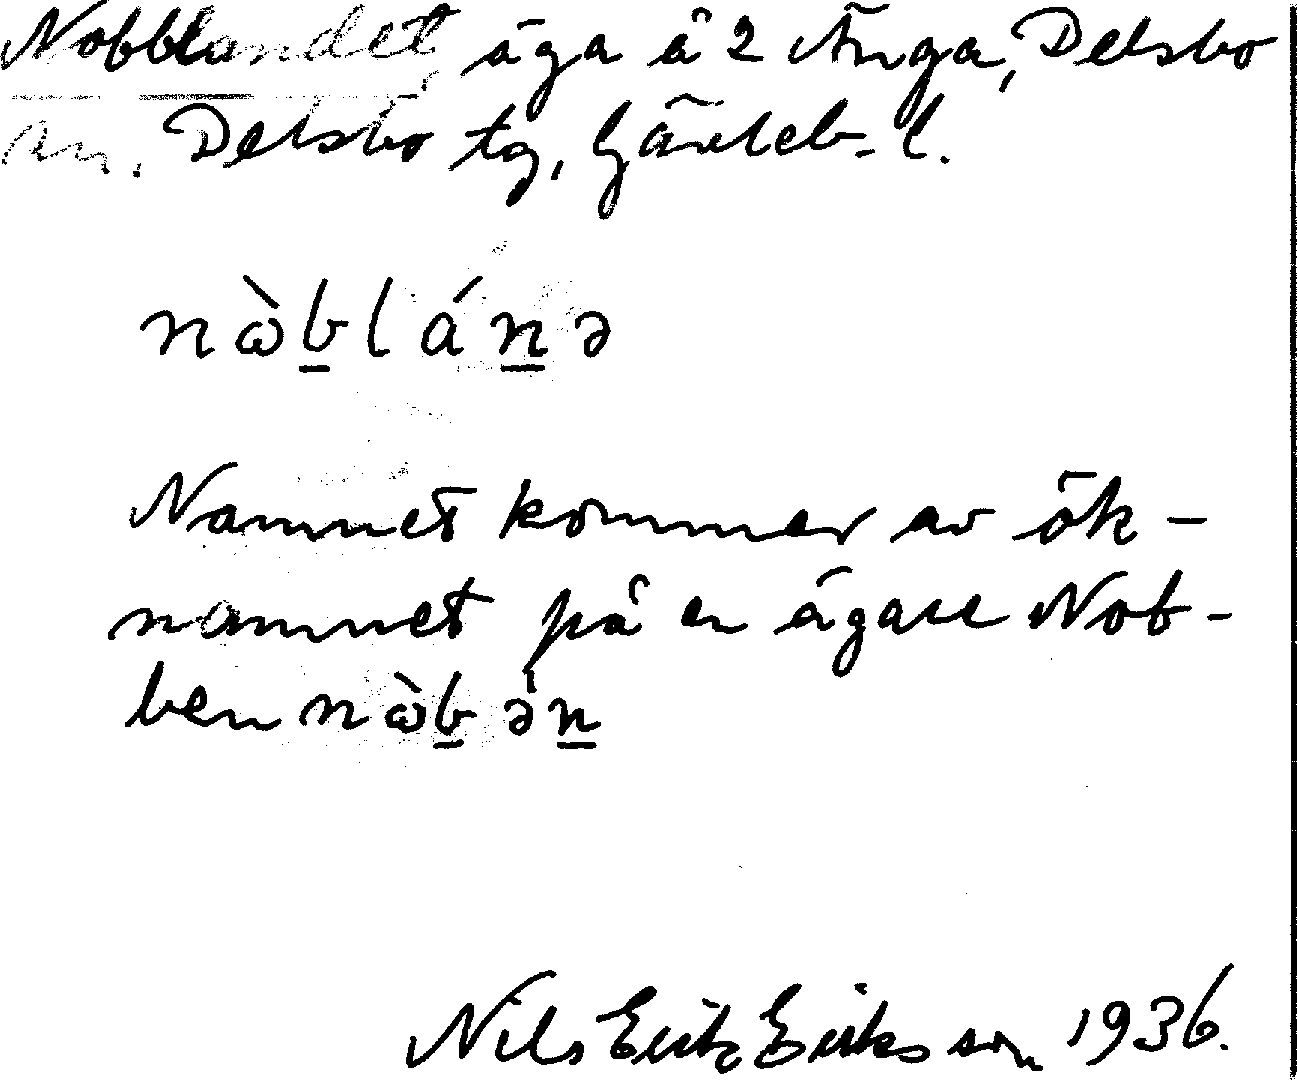 Nobblandet, äga å 2 Änga, Delsbo
sn. Delsbo tg, Gävleb. l.
nὼb̲lán̲ə
Namnet kommer av ök-
namnet på en ägare Nob-
ben nὼb̲ ə̀n̲
Nils Erik Eriksson 1936.